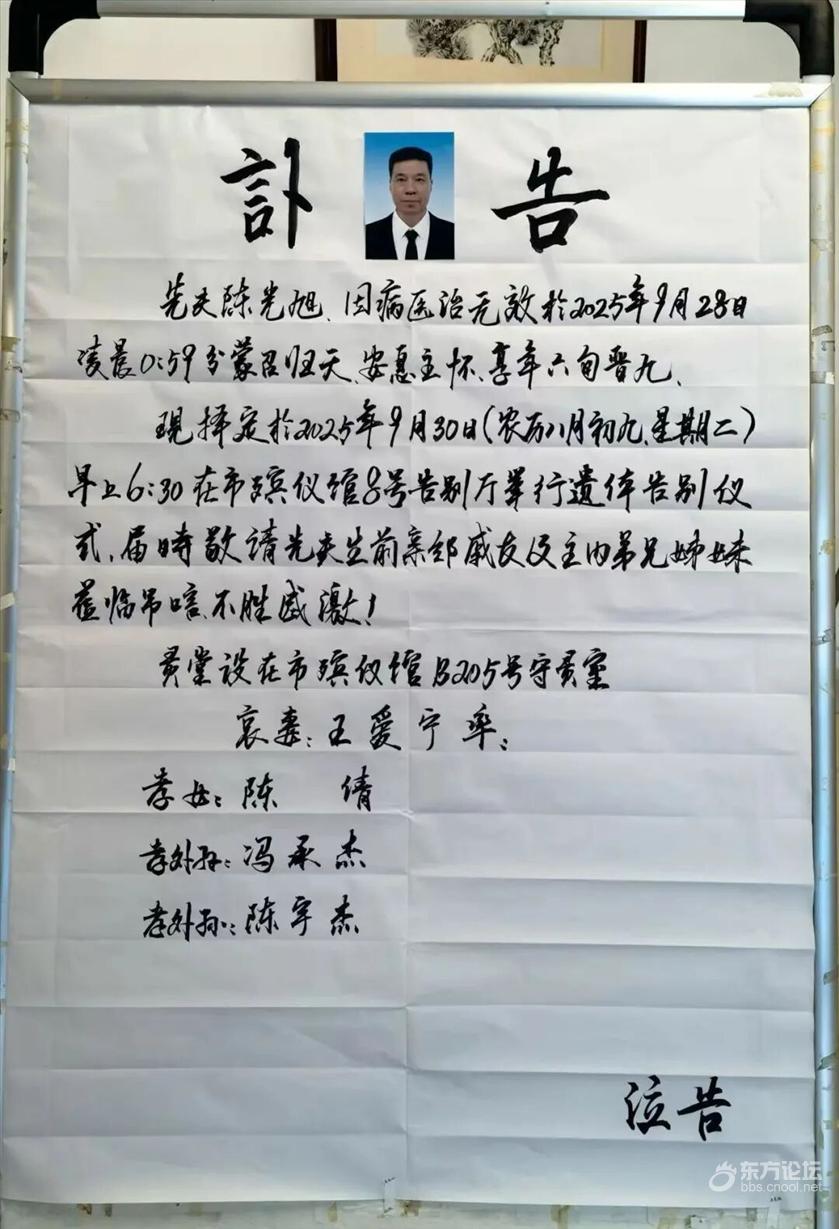 訃告
先夫陈光旭、因病医治无效於2025年9月28日
凌晨0:59分蒙召归天、安息主怀、享年六旬晋九、
现择定於2025年9月30日(农历八月初九、星期二)
早上6:30在市殡仪馆8号告别厅举行遗体告别仪
式、届時敬请先夫生前亲邻戚友及主内弟兄姊妹
莅临吊唁、不胜感激!
灵堂设在市殡仪馆B205号守灵室
哀妻:王爱宁率:
孝女:陈 倩
孝外孙:冯承杰
孝外孙:陈宇杰
泣告
东方论坛
bbs.cnool.net